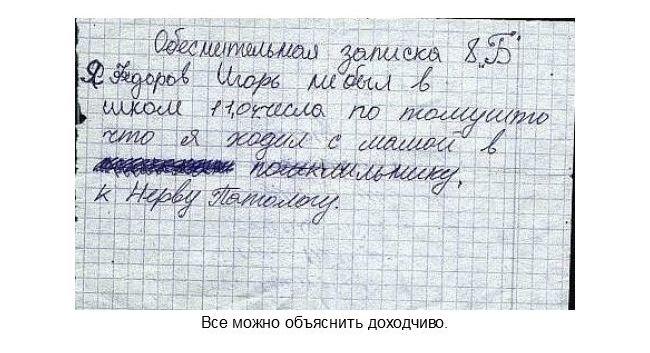 Обеснительная записка 8 „Б"
Я Федоров Игорь небыл в
школ 11,04 числа по томушто
что я ходил с мамой в
к Нерву Патологу.
Все можно объяснить доходчиво.